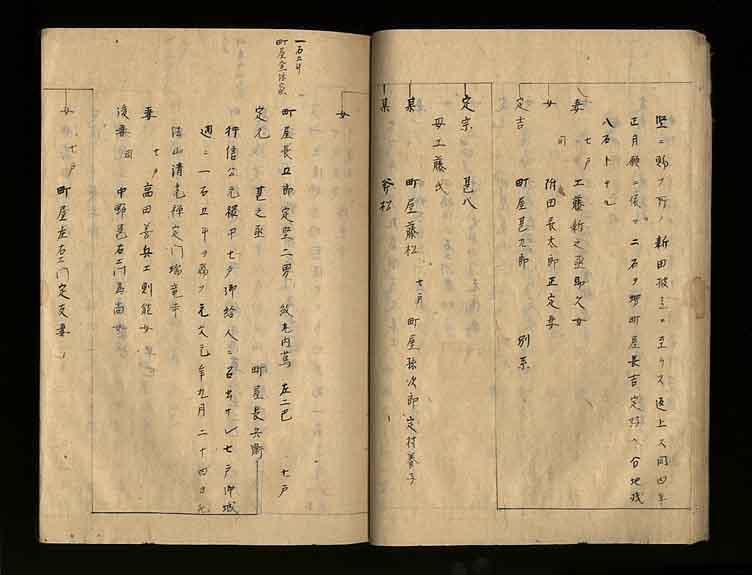 堅ニ賜フ所ノ新田披立ニ至ラス返上ス同四年
正月願ニ依テ二石ヲ町屋長吉定好ヘ分地残
八石トナル
妻 七戸 工藤新之丞 女
女 同 附田長太郎正定妻
定吉 町屋甚九郎 別系
定宗 甚八
母工藤氏
某 町屋藤松 七戸 町屋弥次郎定村養子
某 松
女
一石二斗
町屋
町屋長五郎定堅二男 紋丸内蔦 左二巴 七戸
定光 甚之丞 町屋長兵衛
行信公元禄中七戸御給人ニ召出サレ七戸御城
廻ニ一石 ヲ賜フ元文元年九月二十四日死
法山清光禅定門瑞竜寺
妻 七戸 高田善兵エ則能女
後妻 同 中野 右エ門 女
女 七戸 町屋 右エ門定友妻